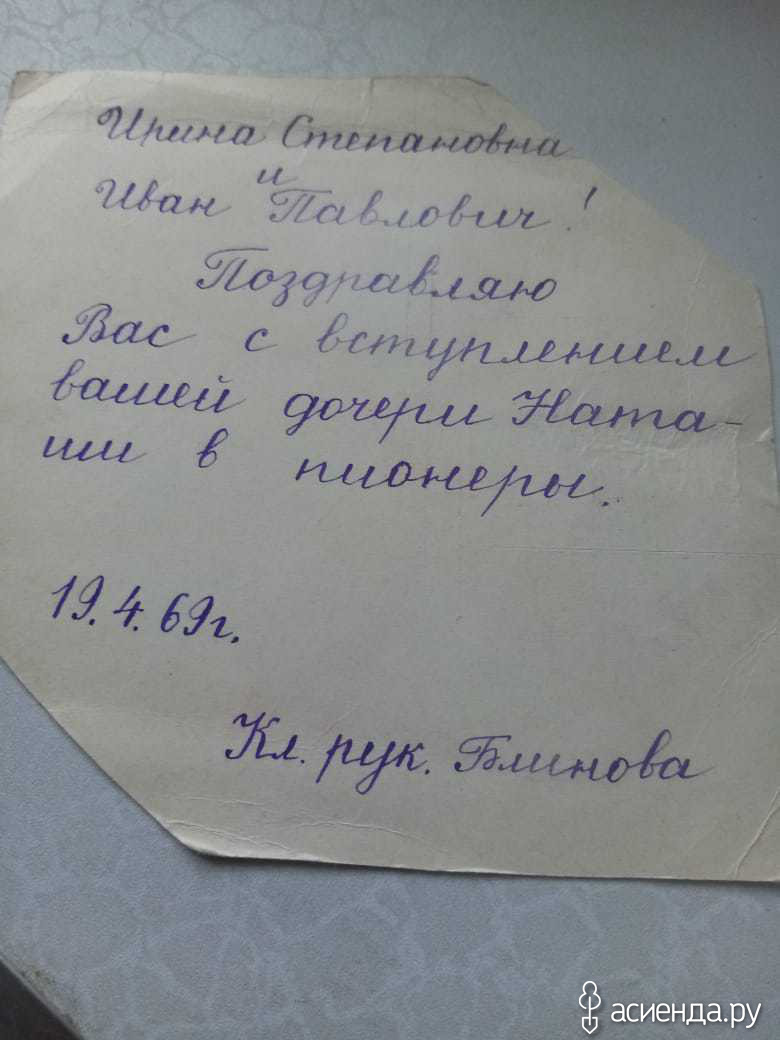 Ирина Степановна
и
Иван Павлович!
Поздравляю
Вас с вступлением
вашей дочери Ната-
ши в пионеры.
19.4.69г.
Кл. рук. Блинова
асиенда.ру